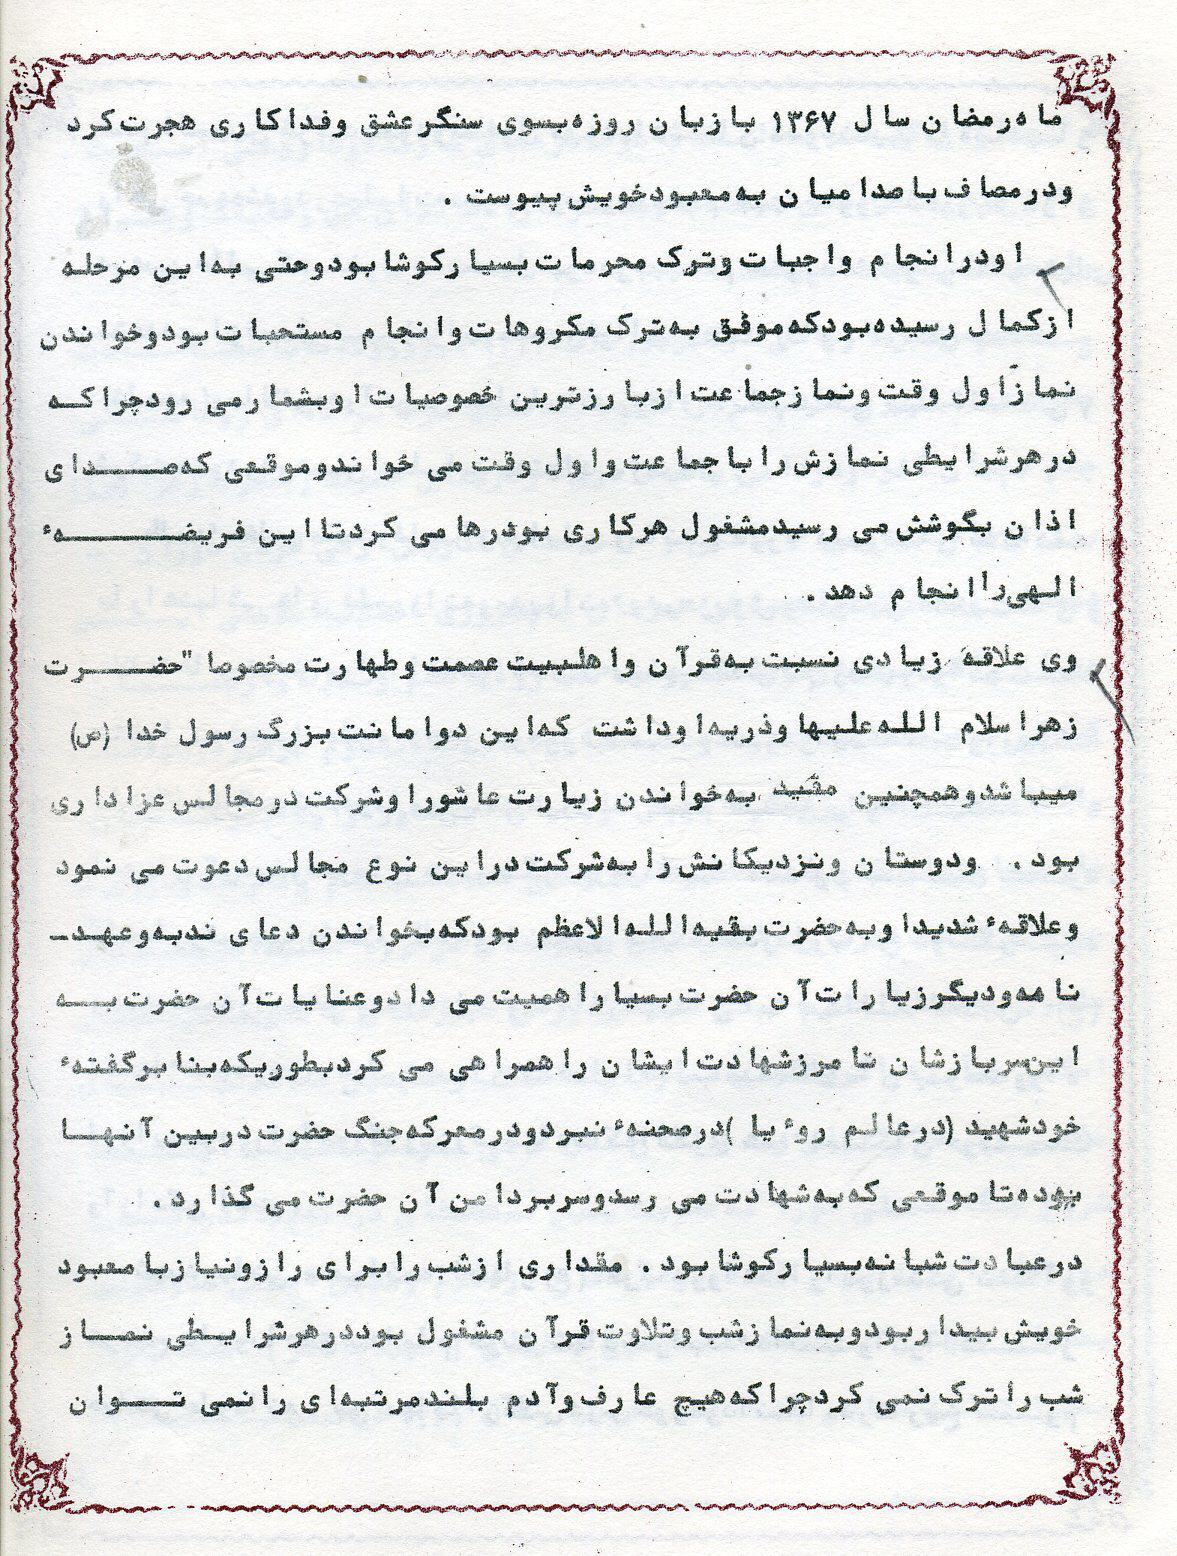 ماه رمضان سال ۱۳۶۷ با زبان روزه بسوی سنگر عشق و فداکاری هجرت کرد
و در مصاف با صدامیان به معبود خویش پیوست .
او در انجام واجبات و ترک محرمات بسیار کوشا بود و حتی به این مرحله
از کمال رسیده بود که موفق به ترک مکروهات و انجام مستحبات بود و خواندن
نماز اول وقت و نماز جماعت از بارزترین خصوصیات او بشمار می رود چرا که
در هر شرایطی نمازش را با جماعت و اول وقت می خواند و موقعی که صدای
اذان بگوشش می رسید مشغول هر کاری بود رها می کرد تا این فریضهٔ
الهی را انجام دهد .
وی علاقه زیادی نسبت به قرآن و اهلبیت عصمت و طهارت مخصوصا " حضرت
زهرا سلام الله علیها و ذریه او داشت که این دو امانت بزرگ رسول خدا (ص)
میباشد و همچنین مقید به خواندن زیارت عاشورا و شرکت در مجالس عزاداری
بود . و دوستان و نزدیکانش را به شرکت در این نوع مجالس دعوت می نمود
و علاقهٔ شدید او به حضرت بقیه الله الاعظم بود که بخواندن دعای ندبه و عهد ـ
نامه و دیگر زیارات آن حضرت بسیار اهمیت می داد و عنایات آن حضرت به
این سربازشان تا مرز شهادت ایشان را همراهی می کرد بطوریکه بنا بر گفتهٔ
خود شهید (در عالم روءیا ) در صحنهٔ نبرد و در معرکه جنگ حضرت در بین آنها
بوده تا موقعی که به شهادت می رسد و سر بر دامن آن حضرت می گذارد .
در عبادت شبانه بسیار کوشا بود . مقداری از شب را برای راز و نیاز با معبود
خویش بیدار بود و به نماز شب و تلاوت قرآن مشغول بود در هر شرایطی نماز
شب را ترک نمی کرد چرا که هیچ عارف و آدم بلند مرتبه ای را نمی توان